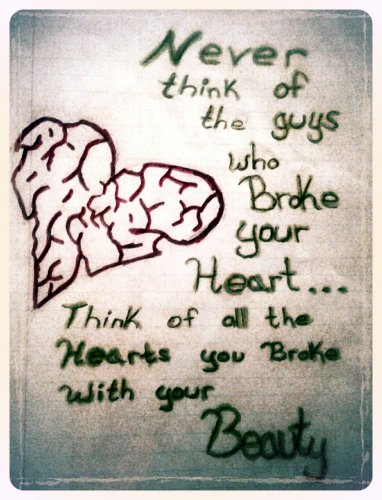 Never
think of
the guys
who
Broke
your
Heart...
Think of all the
Hearts you Broke
With your
Beauty